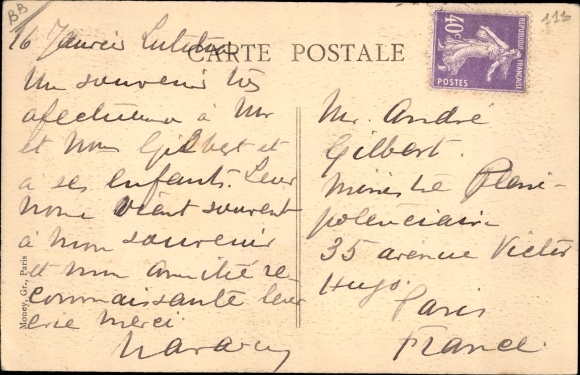 BB
113
CARTE POSTALE
40c
RÉPUBLIQUE FRANÇAISE
POSTES
16 Janvier
Un souvenir très
afectueux à Mr
et Mme Gilbert et
a ses enfants. Leur
nome vient souvent
à mon souvenir
et mon amitié re-
connaissante leur
crie merci.
Mr. André
Gilbert.
Ministre Pleni-
potenciaire
35 avenue Victor
Hugo.
Paris
France.
Mouney, Gr., Paris